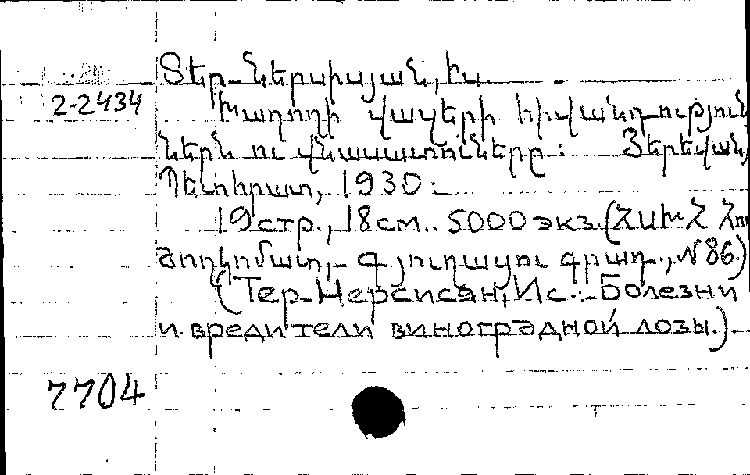 Տեր-Ներսիսյան, Իս.
2-2434
Խաղողի վազերի հիվանդություն
ներն ու վնասատուները: Յերեվան,
Պետհրատ, 1930:
19 стр., 18 см. 5000 экз. (ՀՍԽՀ Հող
ժողկոմատ,- Գյուղատնտ. գրադ., №86.)
(Тер-Нерсисян, Ис.: Болезни
и вредители виноградной лозы.)
7704